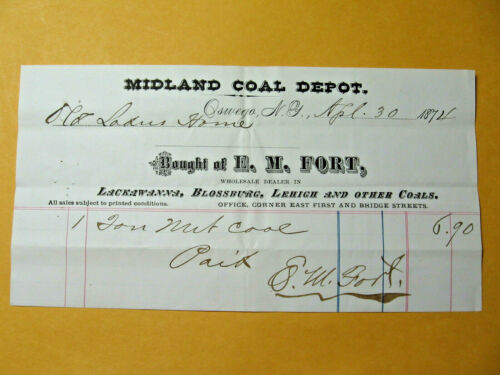 MIDLAND COAL DEPOT.
Oswego, N.Y., Apl. 30 1874
Old Ladies Home
Bought of E. M. FORT,
WHOLESALE DEALER IN
LACKAWANNA, BLOSSBURG, LEHIGH AND OTHER COALS.
All sales subject to printed conditions. OFFICE, CORNER EAST FIRST AND BRIDGE STREETS.
1 Ton Nut Coal 6.90
Paid
E. M. Fort.